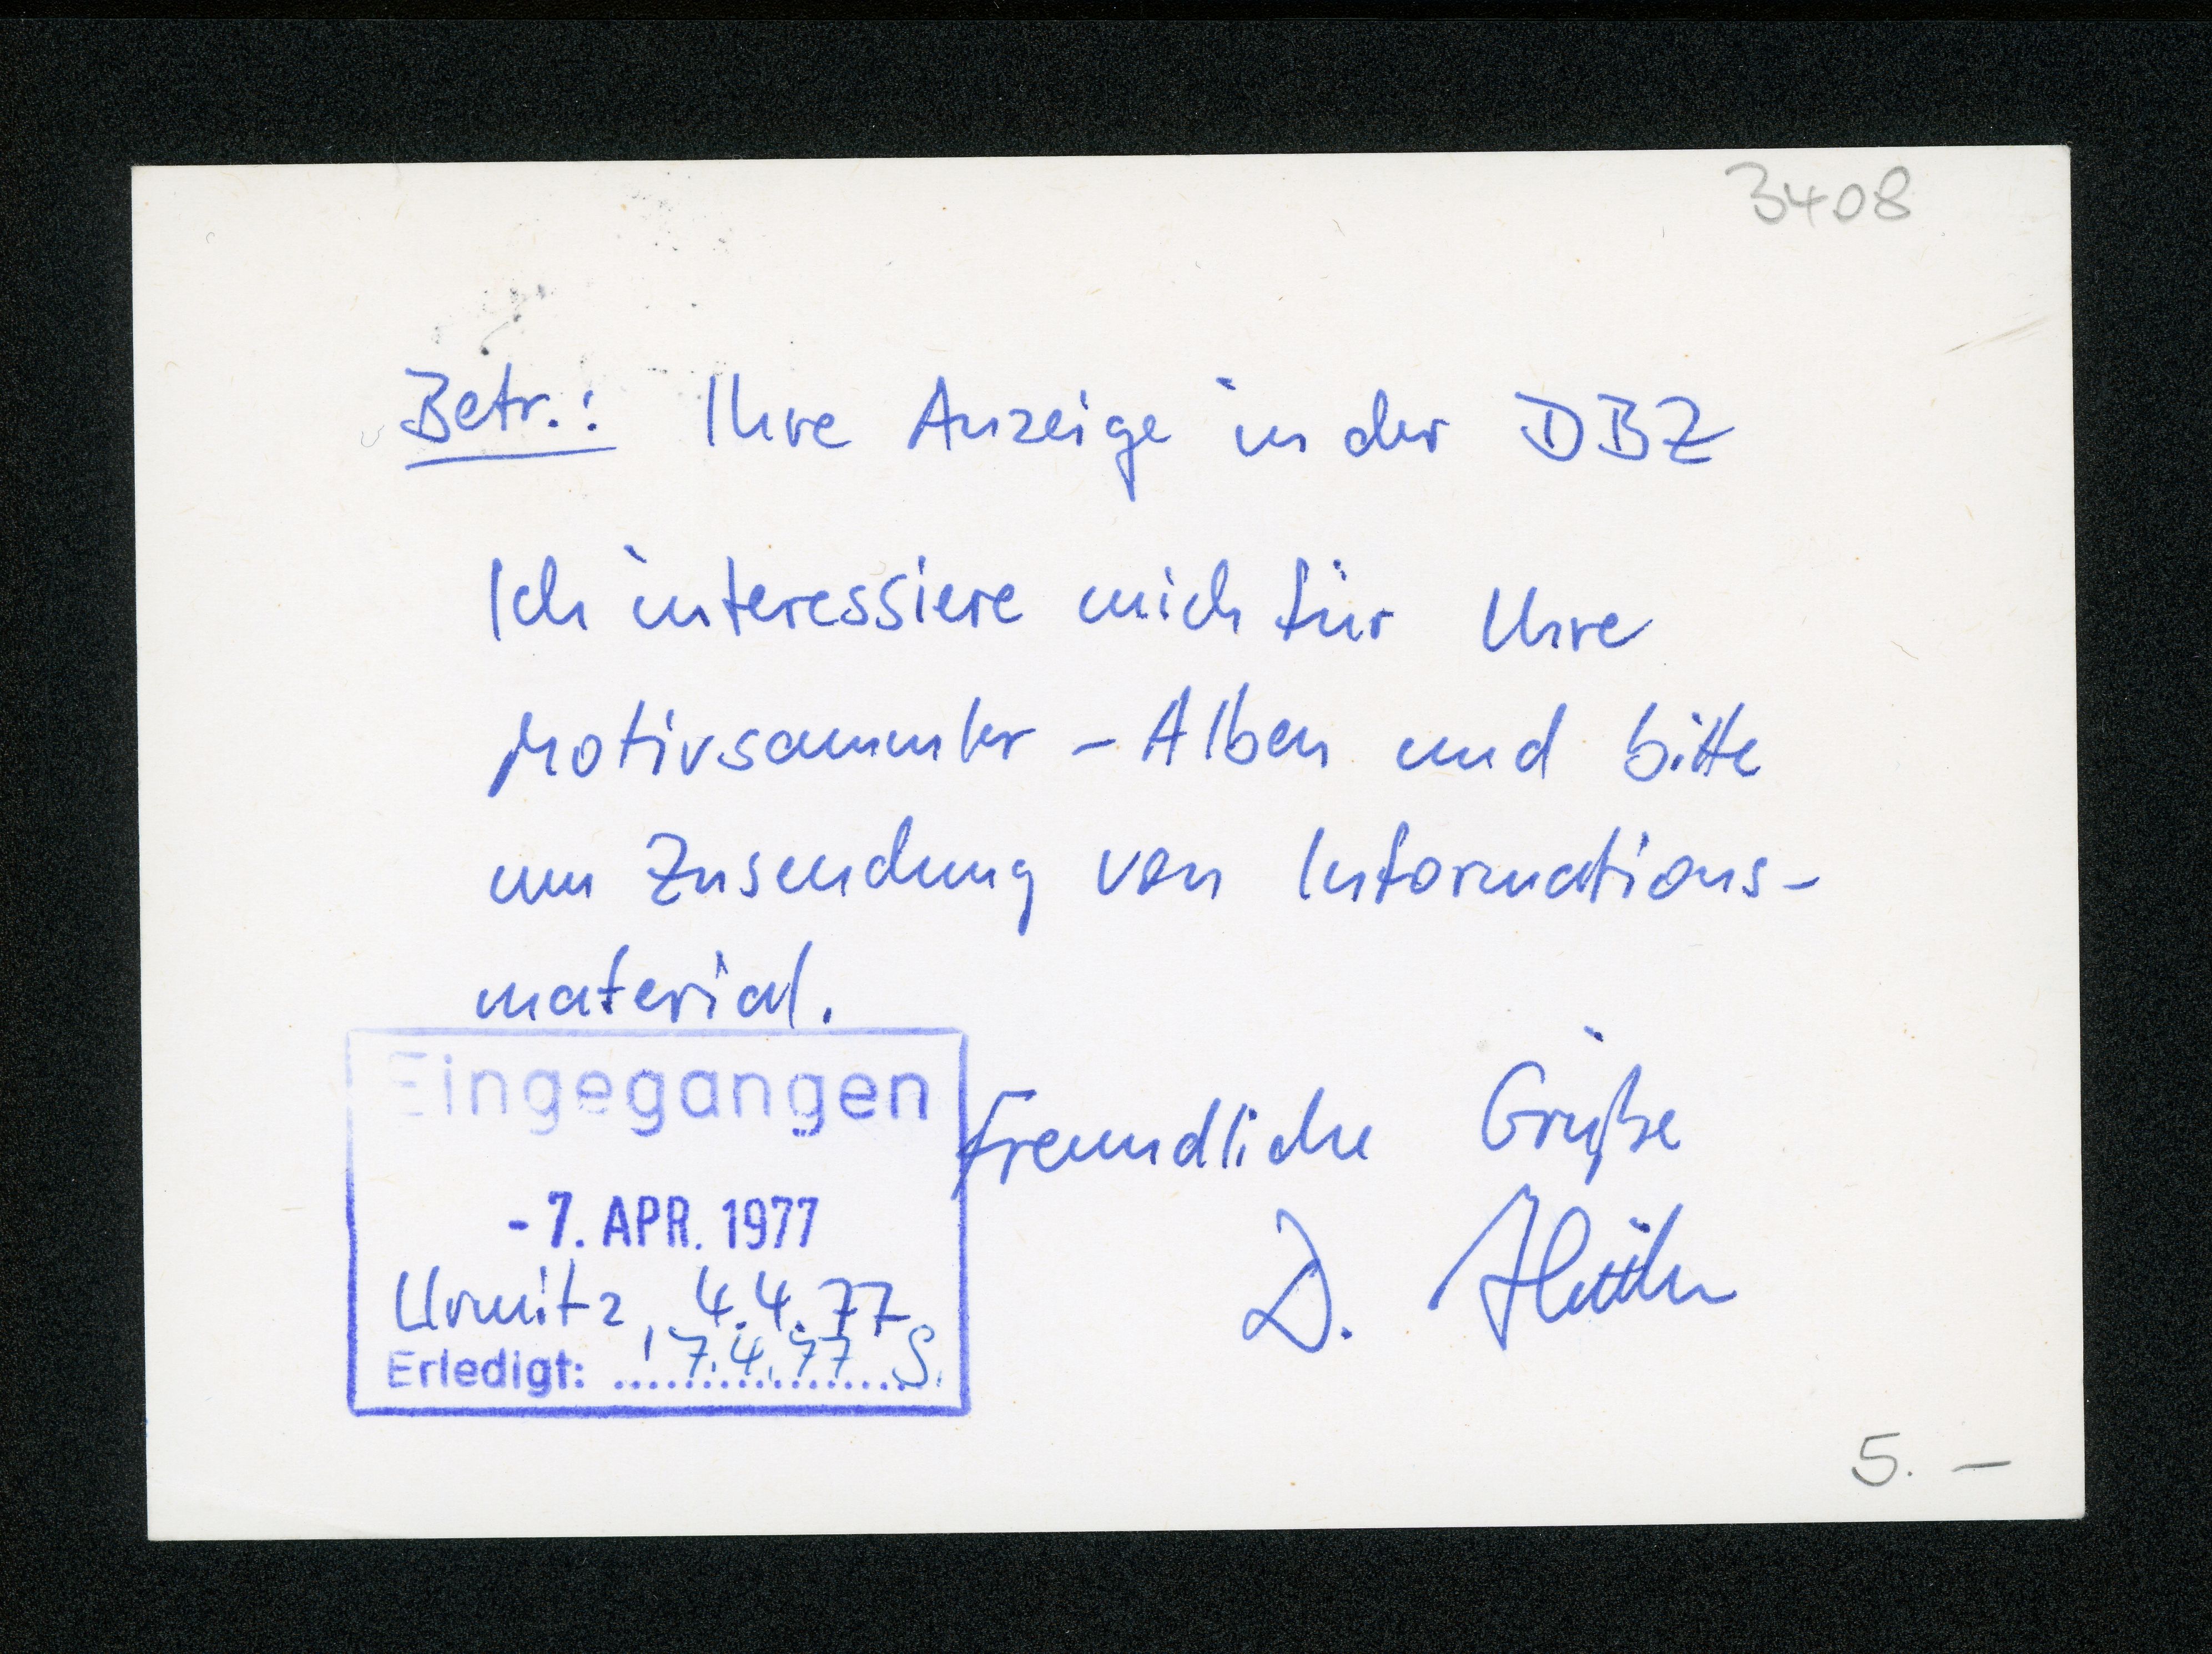 3408
Betr.: Ihre Anzeige in der DBZ
Ich interessiere mich für Ihre
Motivsammler-Alben und bitte
um Zusendung von Informations-
material.
Eingegangen
Freundliche Grüße
-7. APR. 1977
D.
Urmitz, 4.4.77
Erledigt: 7.4.77 S.
5.-